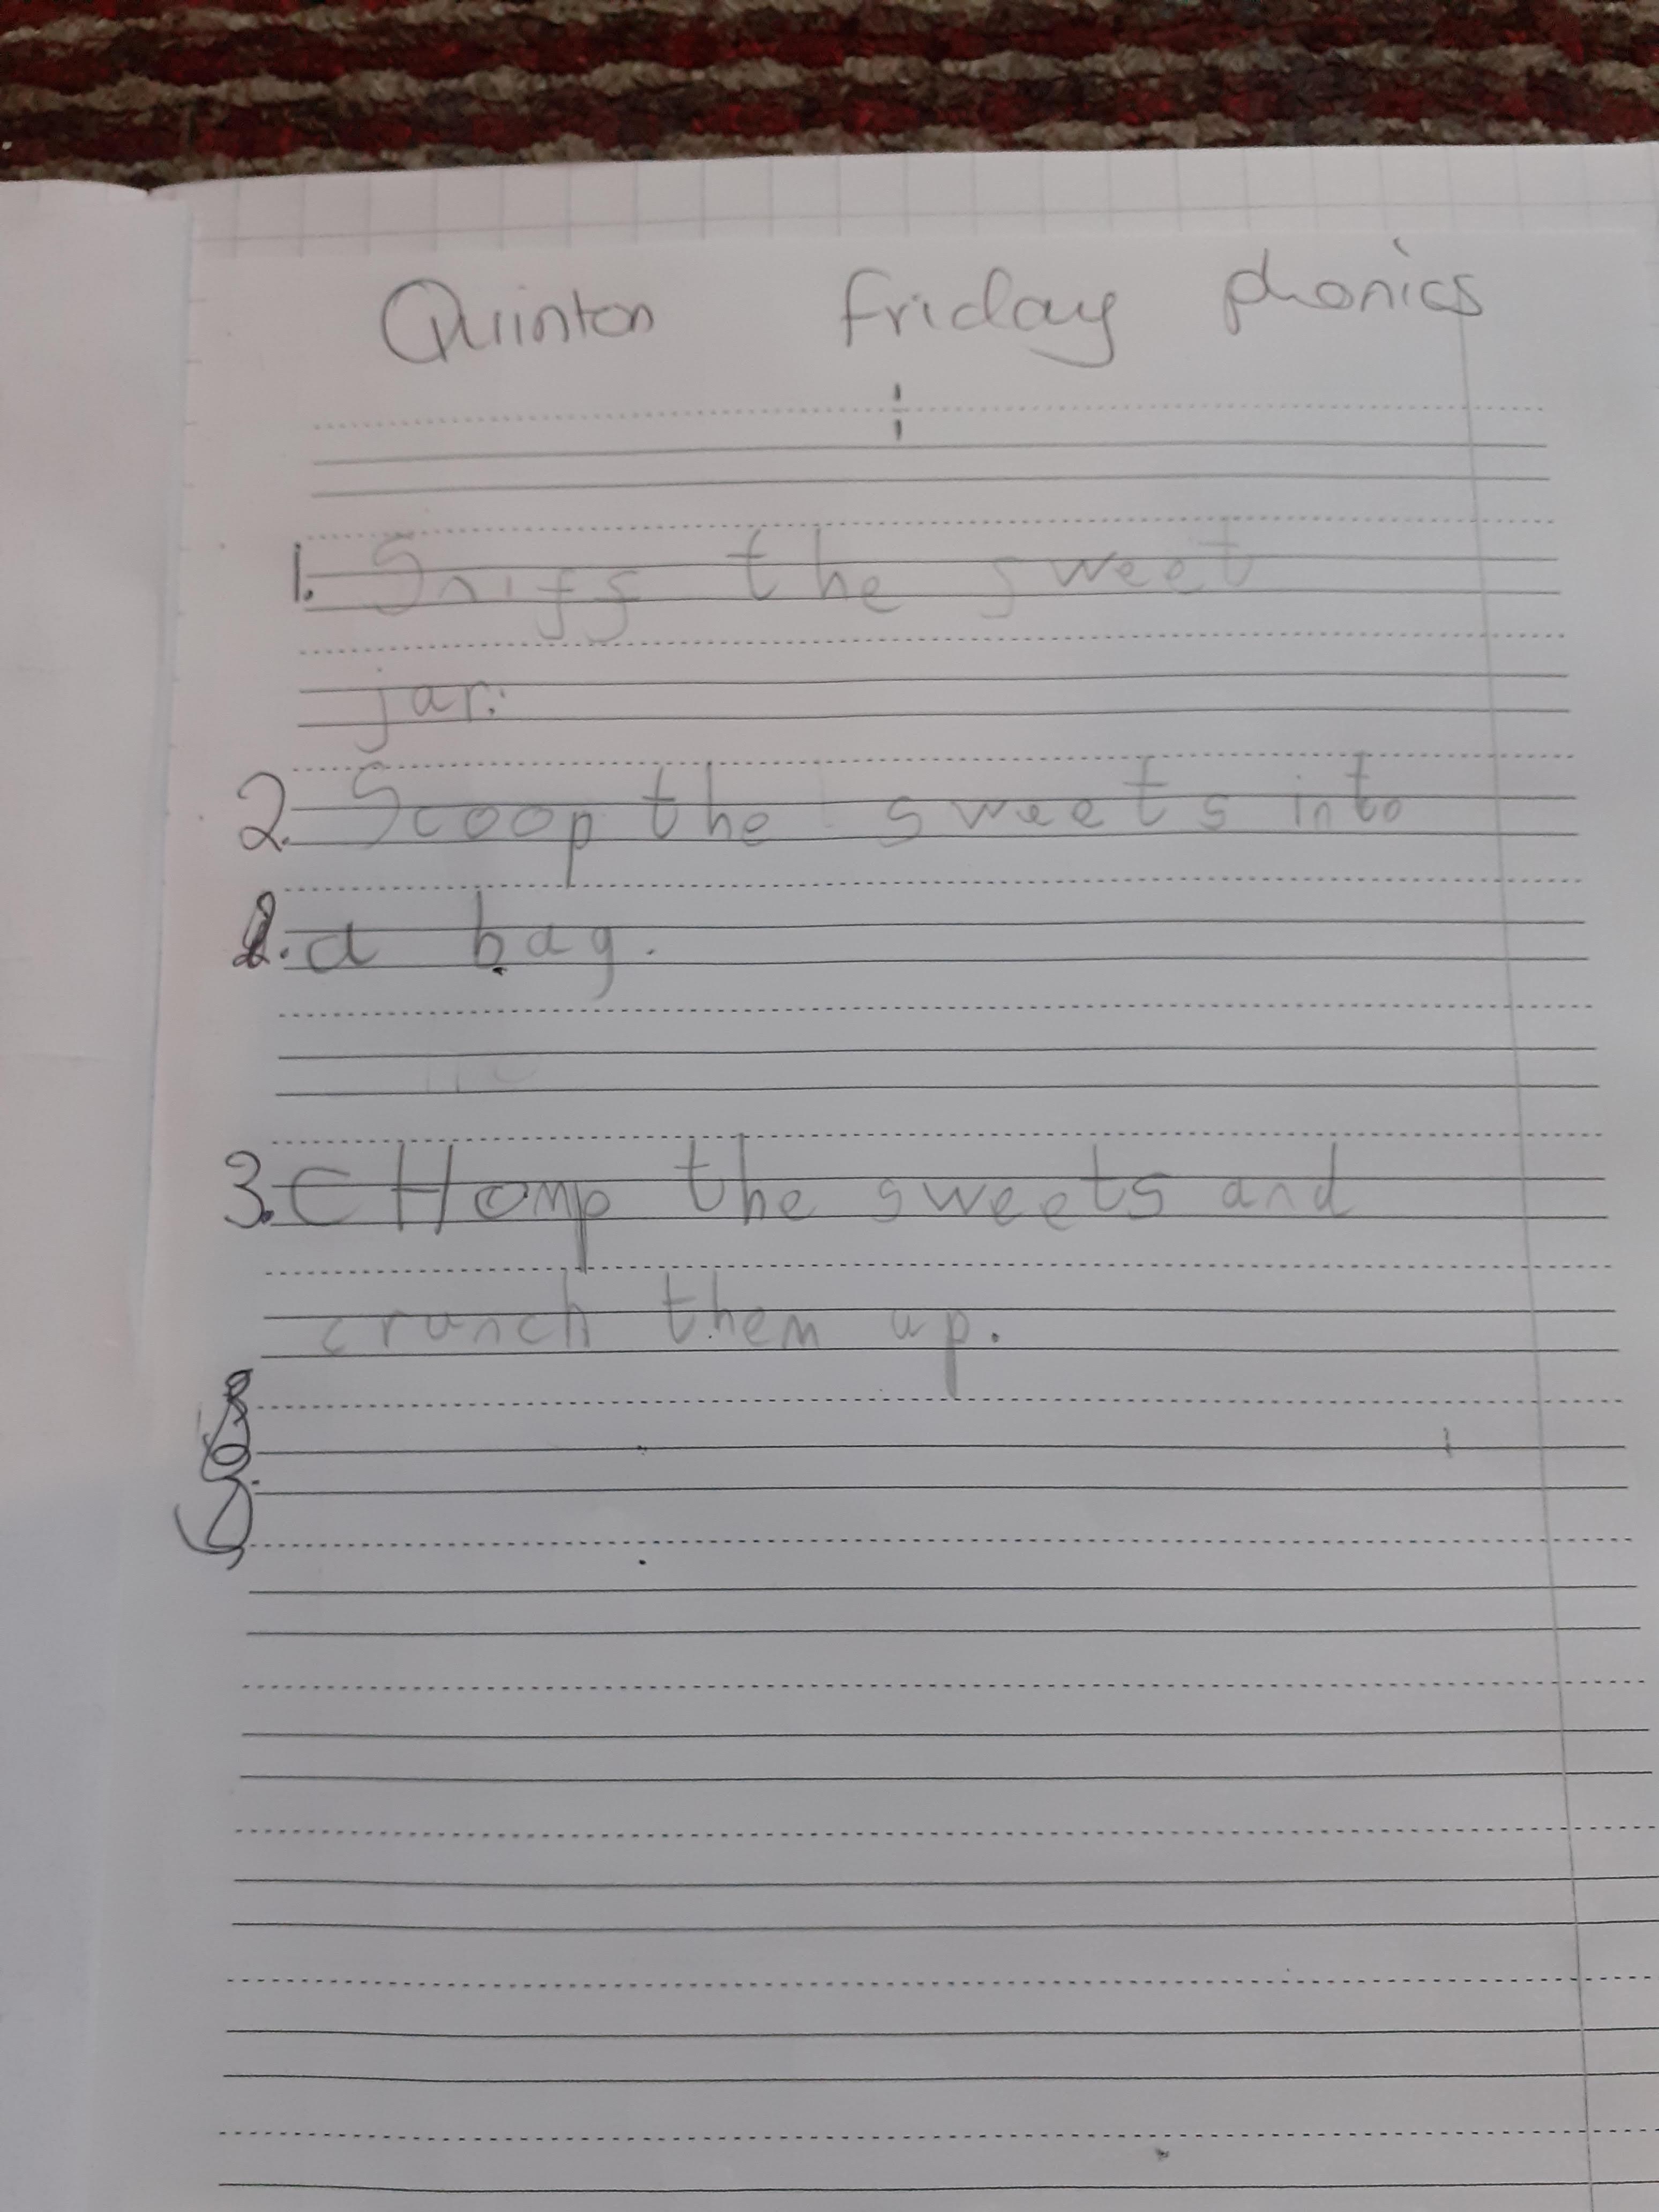 Quinton friday phonics
1. Sniff the sweet
jar.
2. Scoop the sweets into
a bag.
3. CHomp the sweets and
crunch them up.